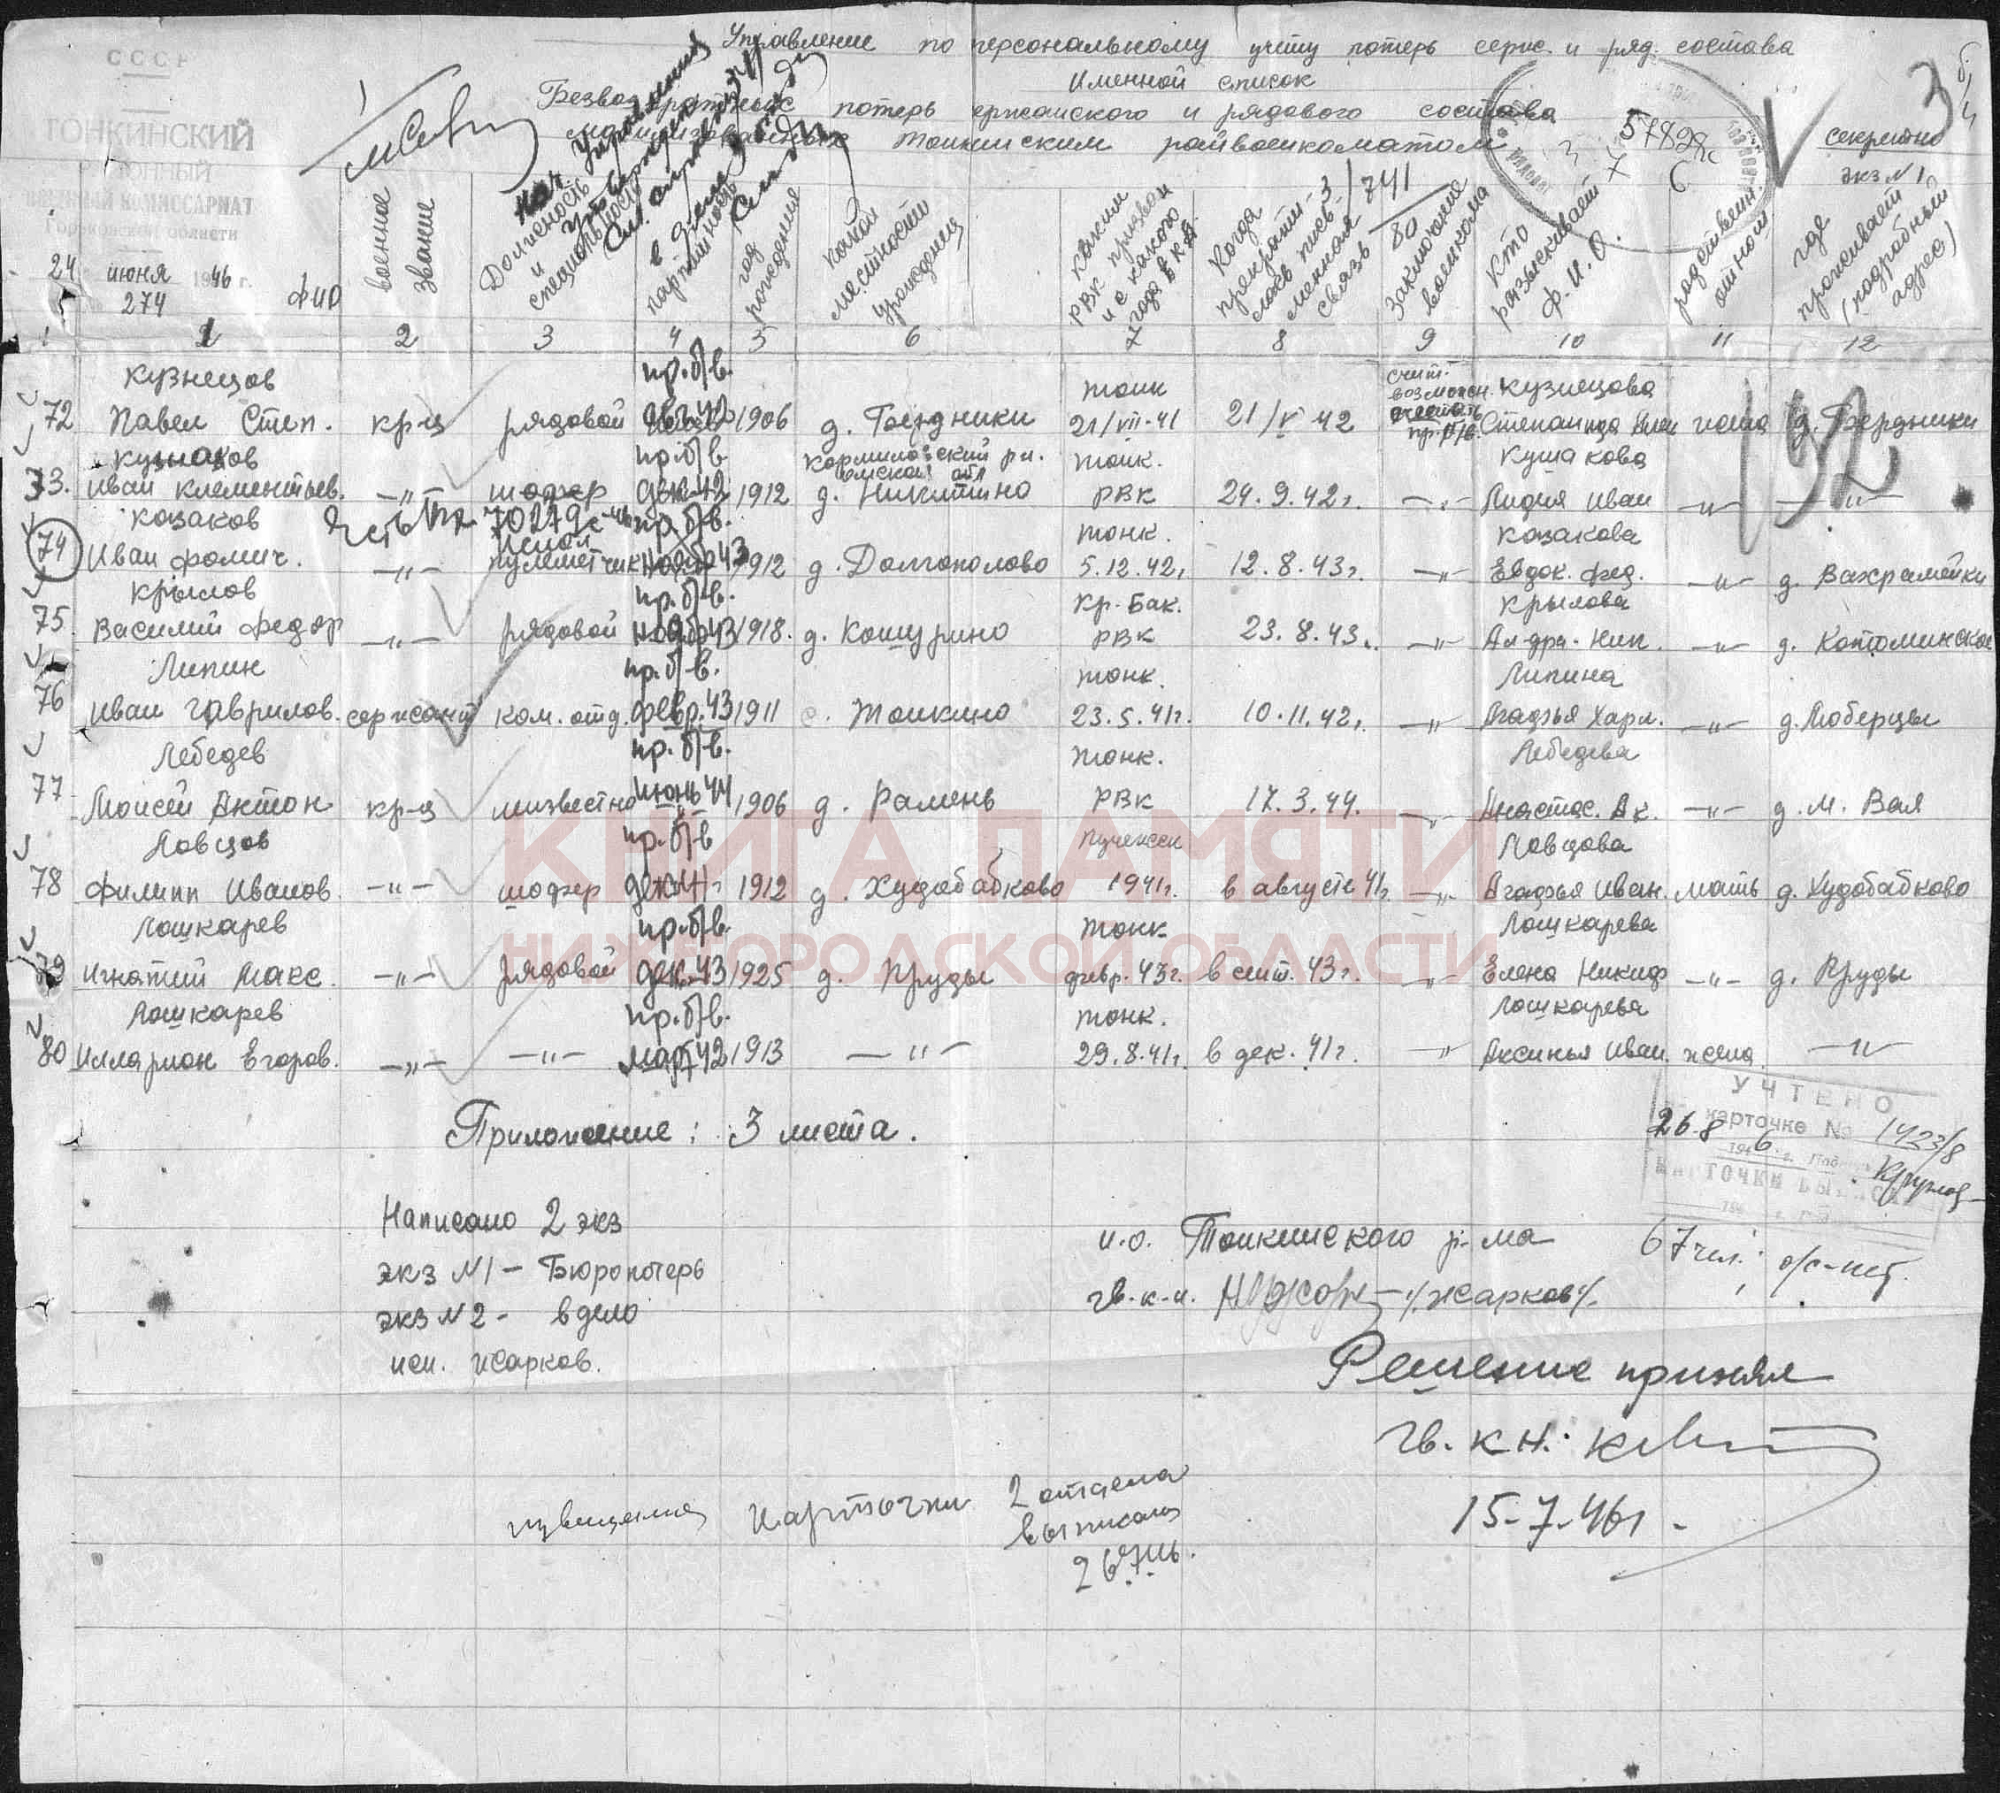 СССР
ТОНКИНСКИЙ
РАЙОННЫЙ
ВОЕННЫЙ КОМИССАРИАТ
Горьковской области
24 июня 1946 г.
№ 274
Управление по персональному учету потерь серж. и ряд. состава
Именной список
Безвозвратных потерь сержанского и рядового состава
мобилизованных Тонкинским райвоенкоматом
секретно
экз N 1
57829с
3/741
80
ФИО
военное звание
Должность и специальность
партийность
год рождения
какой местности уроженец
каким РВК призван и с какого года в К.А.
Когда прекратилась письменная связь
Заключение военкома
Кто разыскивает Ф.И.О.
родственн. отнош
где проживает (подробный адрес)
1 2 3 4 5 6 7 8 9 10 11 12
Кузнецов пр.б/в. тонк счит. возможн. Кузнецова
72 Павел Степ. кр-ц рядовой 1906 д. Бердники 21/VII-41 21/V 42 пр. б/в. Степанида жена д. Бердники
пр.б/в. Кормиловский рн. омской обл тонк. Кушакова
73. Иван Клементьев. —„— шофер дек.42 1912 д. Никитино РВК 24.9.42г. —„— Лидия Иван —„— —„—
Козаков есть 70279с-46 пр.б/в. тонк. Козакова
74 Иван Фомич. —„— пулеметчик ноябр43 1912 д. Долгополово 5.12.42г 12.8.43г. —„— Евдок. Фед. —„— д. Вахрамейки
Крылов пр.б/в. Кр-Бак. Крылова
75. Василий Федор —„— рядовой ноябр43 1918. д. Кошурино РВК 23.8.43г. —„— Ал-дра. Ник. —„— д. Котоминское
Липин пр.б/в. тонк. Липина
76 Иван Гаврилов. сержант ком. отд. февр.43 1911 с. Тонкино 23.5.41г. 10.11.42г. —„— Агафья Харл. —„— д. Люберцы
Лебедев пр.б/в. тонк. Лебедева
77 Моисей Актон кр-ц неизвестно июнь44 1906 д. Рамень РВК 17.3.44. —„— Анастас. Ак. —„— д. М. Вая
Ловцов пр.б/в Ловцова
78 Филипп Иванов. —„— шофер дек41г 1912 д. Худобабково 1941г. в августе 41г. —„— Агафья Иван. мать д. Худобабково
Лошкарев пр.б/в. тонк Лошкарева
79 Игнатий Макс. —„— рядовой дек.43 1925 д. Пруды февр.43г. в сент.43г. —„— Елена Никиф —„— д. Пруды
Лошкарев пр.б/в. тонк. Лошкарева
80 Илларион Егоров. —„— —„— март42 1913 —„— 29.8.41г. в дек. 41г. —„— Аксинья Иван. жена —„—
КНИГА ПАМЯТИ
НИЖЕГОРОДСКОЙ ОБЛАСТИ
Приложение: 3 листа.
УЧТЕНО
карточке № 1423/8
26.8 1946 г.
Написано 2 экз
экз N1 – Бюро потерь
экз N2 – в дело
исп. Жарков.
и.о. Тонкинского р-ма
гв. к-н. /Жарков/.
67 чел.
Решение принял
гв. к-н.
15-7-46г
извещения карточки 2 отдела
выписаны